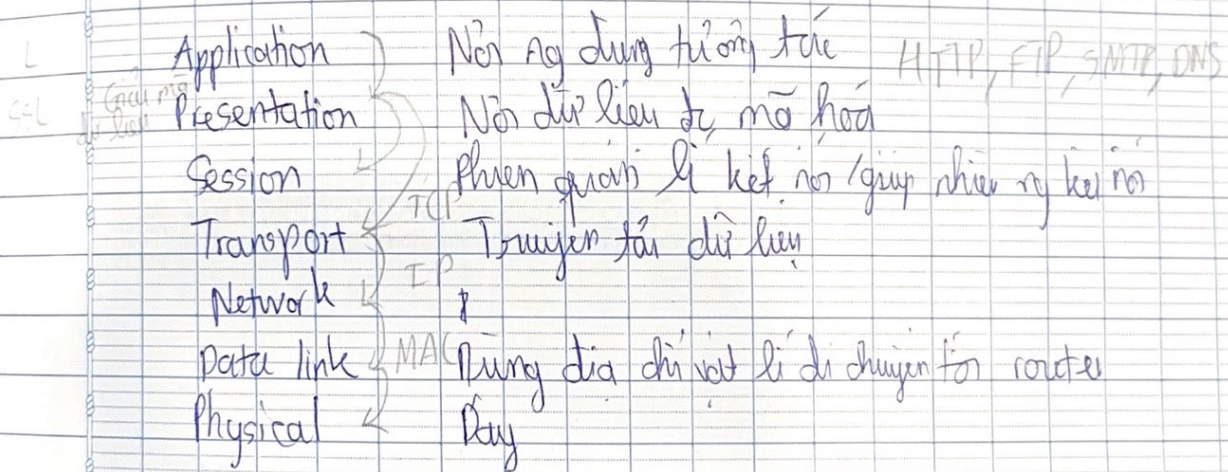 Application Nơi ng dùng tương tác HTTP, FTP, SMTP, DNS
Presentation Nơi dữ liệu đc mã hoá
Session Phiên quản lí kết nối / giúp nhiều ng kết nối
TCP
Transport Truyền tải dữ liệu
IP
Network
Data link MAC Dùng địa chỉ vật lí di chuyển tới router
Physical Dây